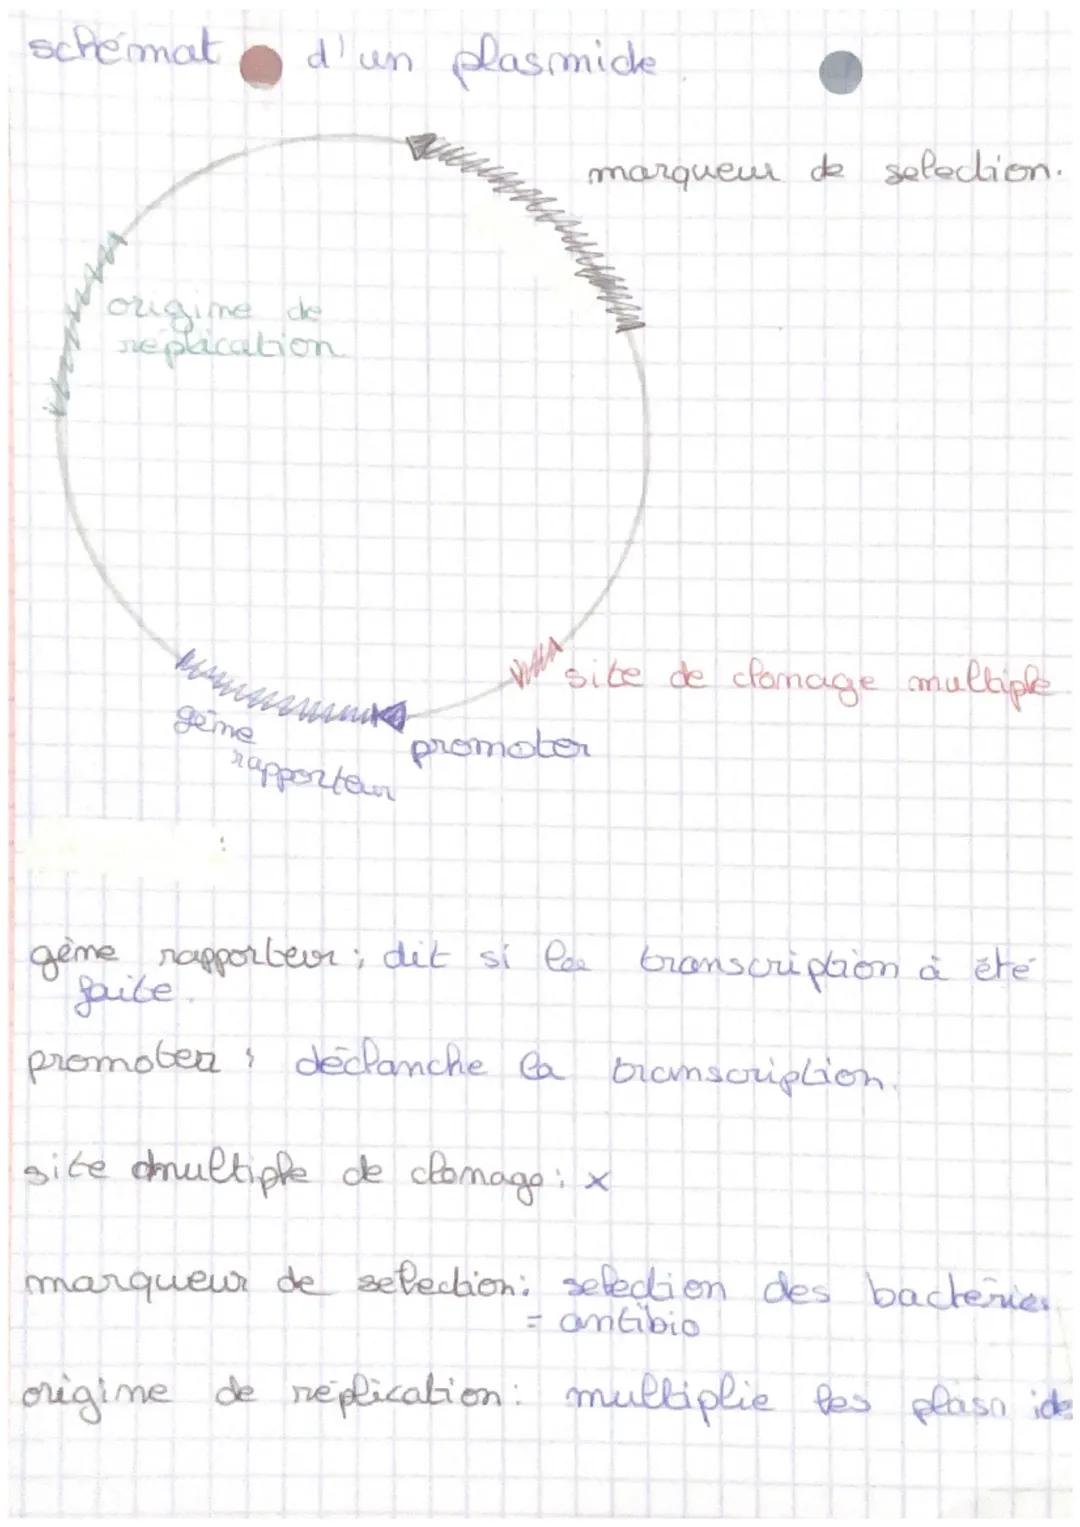 schémat d'un plasmide
marqueur de selection.
origine de
réplication
site de clonage multiple
gène
rapporteur
promoter
:
gène rapporteur : dit si la transcription à été
faite.
promoter : déclanche la transcription.
site multiple de clonage : x
marqueur de selection : selection des bactéries
= antibio
origine de réplication : multiplie les plasmides